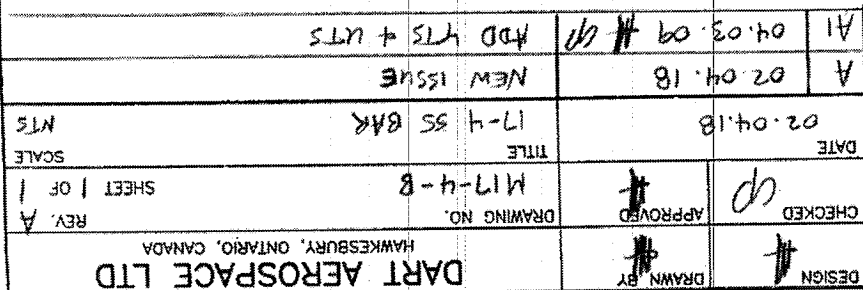 DESIGN DRAWN BY DART AEROSPACE LTD
HAWKESBURY, ONTARIO, CANADA
CHECKED APPROVED DRAWING NO. REV. A
M17-4-B SHEET 1 OF 1
DATE TITLE SCALE
02.04.18 17-4 SS BAR NTS
A 02.04.18 NEW ISSUE
A1 04.03.09 ADD YTS & UTS